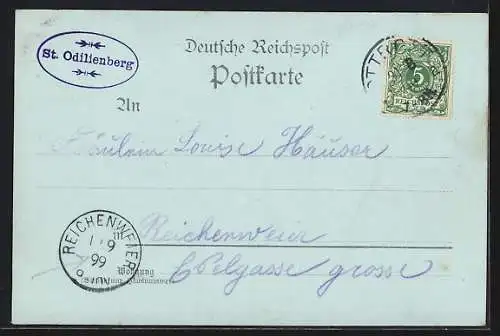 St. Odilienberg
Deutsche Reichspost
Postkarte
An
5
Fräulein Louise Häuser
REICHENWEIER
1 9
99
Reichenweier
Wohnung
Edelgasse grosse